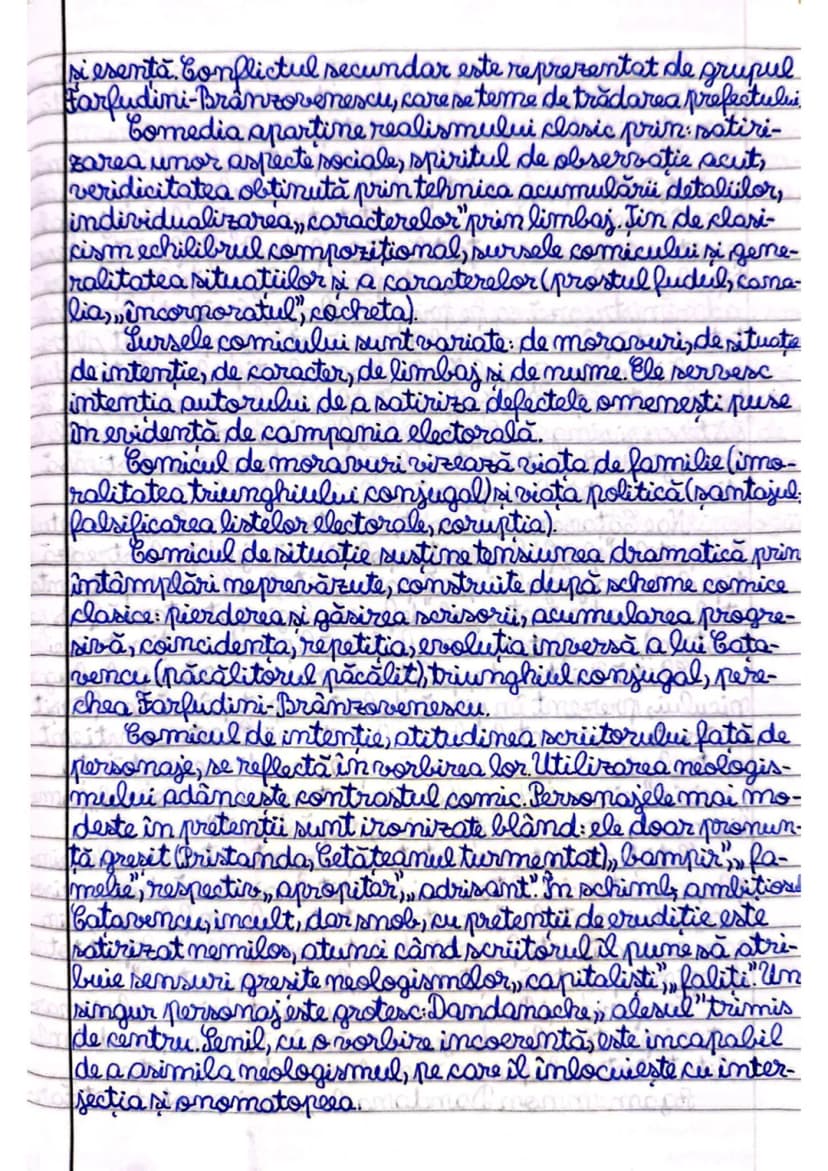 și esență. Conflictul secundar este reprezentat de grupul
Farfudini-Brânzovenescu, care se teme de trădarea prefectului.
Comedia aparține realismului clasic prin: satiri-
zarea unor aspecte sociale, spiritul de observație acut,
veridicitatea obținută prin tehnica acumulării detaliilor,
individualizarea „caracterelor" prin limbaj. Țin de clasi-
cism echilibrul compozițional, sursele comicului și gene-
ralitatea situațiilor și a caracterelor (prostul fudul, cana-
lia, „încornoratul", cocheta).
Sursele comicului sunt variate: de moravuri, de situație
de intenție, de caracter, de limbaj și de nume. Ele servesc
intenția autorului de a satiriza defectele omenești puse
în evidență de campania electorală.
Comicul de moravuri vizează viața de familie (imo-
ralitatea triunghiului conjugal) și viața politică (șantajul,
falsificarea listelor electorale, corupția).
Comicul de situație susține tensiunea dramatică prin
întâmplări neprevăzute, construite după scheme comice
clasice: pierderea și găsirea scrisorii, acumularea progre-
sivă, coincidența, repetiția, evoluția inversă a lui Cața-
vencu (păcălitorul păcălit), triunghiul conjugal, pere-
chea Farfudini-Brânzovenescu.
Comicul de intenție, atitudinea scriitorului față de
personaje, se reflectă în vorbirea lor. Utilizarea neologis-
mului adâncește contrastul comic. Personajele mai mo-
deste în pretenții sunt ironizate blând: ele doar pronun-
ță greșit (Pristanda, Cetățeanul turmentat) „bampir", „fa-
melie", respectiv „apropitar", „adrisant". În schimb, ambițiosul
Cațavencu, incult, dar snob, cu pretenții de erudiție este
satirizat nemilos, atunci când scriitorul îl pune să atri-
buie sensuri greșite neologismelor „capitaliști", „faliți". Un
singur personaj este grotesc: Dandanache, „alesul" trimis
de centru. Senil, cu o vorbire incoerentă, este incapabil
de a asimila neologismul, pe care îl înlocuiește cu inter-
jecția și onomatopeea.